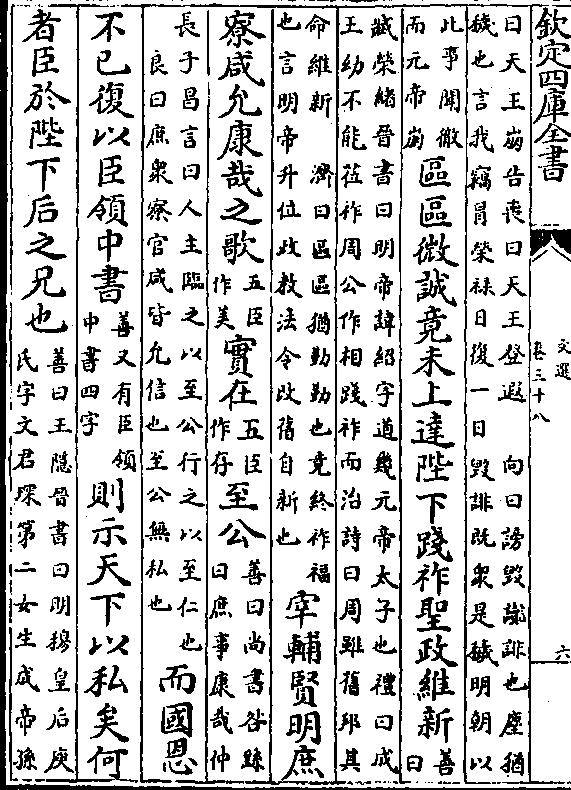 欽定四庫全書
文選
卷三十八
六
曰天王崩告喪曰天王登遐　向曰謗毀譏誹也塵猶
穢也言我竊冒榮祿日復一日毀誹既衆是穢明朝以
此事聞徹而元帝崩區區微誠竟未上達陛下踐祚聖政維新善曰
臧榮緒晉書曰明帝諱紹字道幾元帝太子也禮曰成
王幼不能莅祚周公作相踐祚而治詩曰周雖舊邦其
命維新　濟曰區區猶勤勤也竟終祚福
也言明帝升位政教法令改舊自新也宰輔賢明庶
寮咸允康哉之歌五臣作美實在五臣作存至公善曰尚書咎繇曰庶事康哉仲
長子昌言曰人主臨之以至公行之以至仁也
良曰庶衆寮官咸皆允信也至公無私也而國恩
不已復以臣領中書善又有臣領中書四字則示天下以私矣何
者臣於陛下后之兄也善曰王隱晉書曰明穆皇后庾氏字文君琛第二女生成帝孫